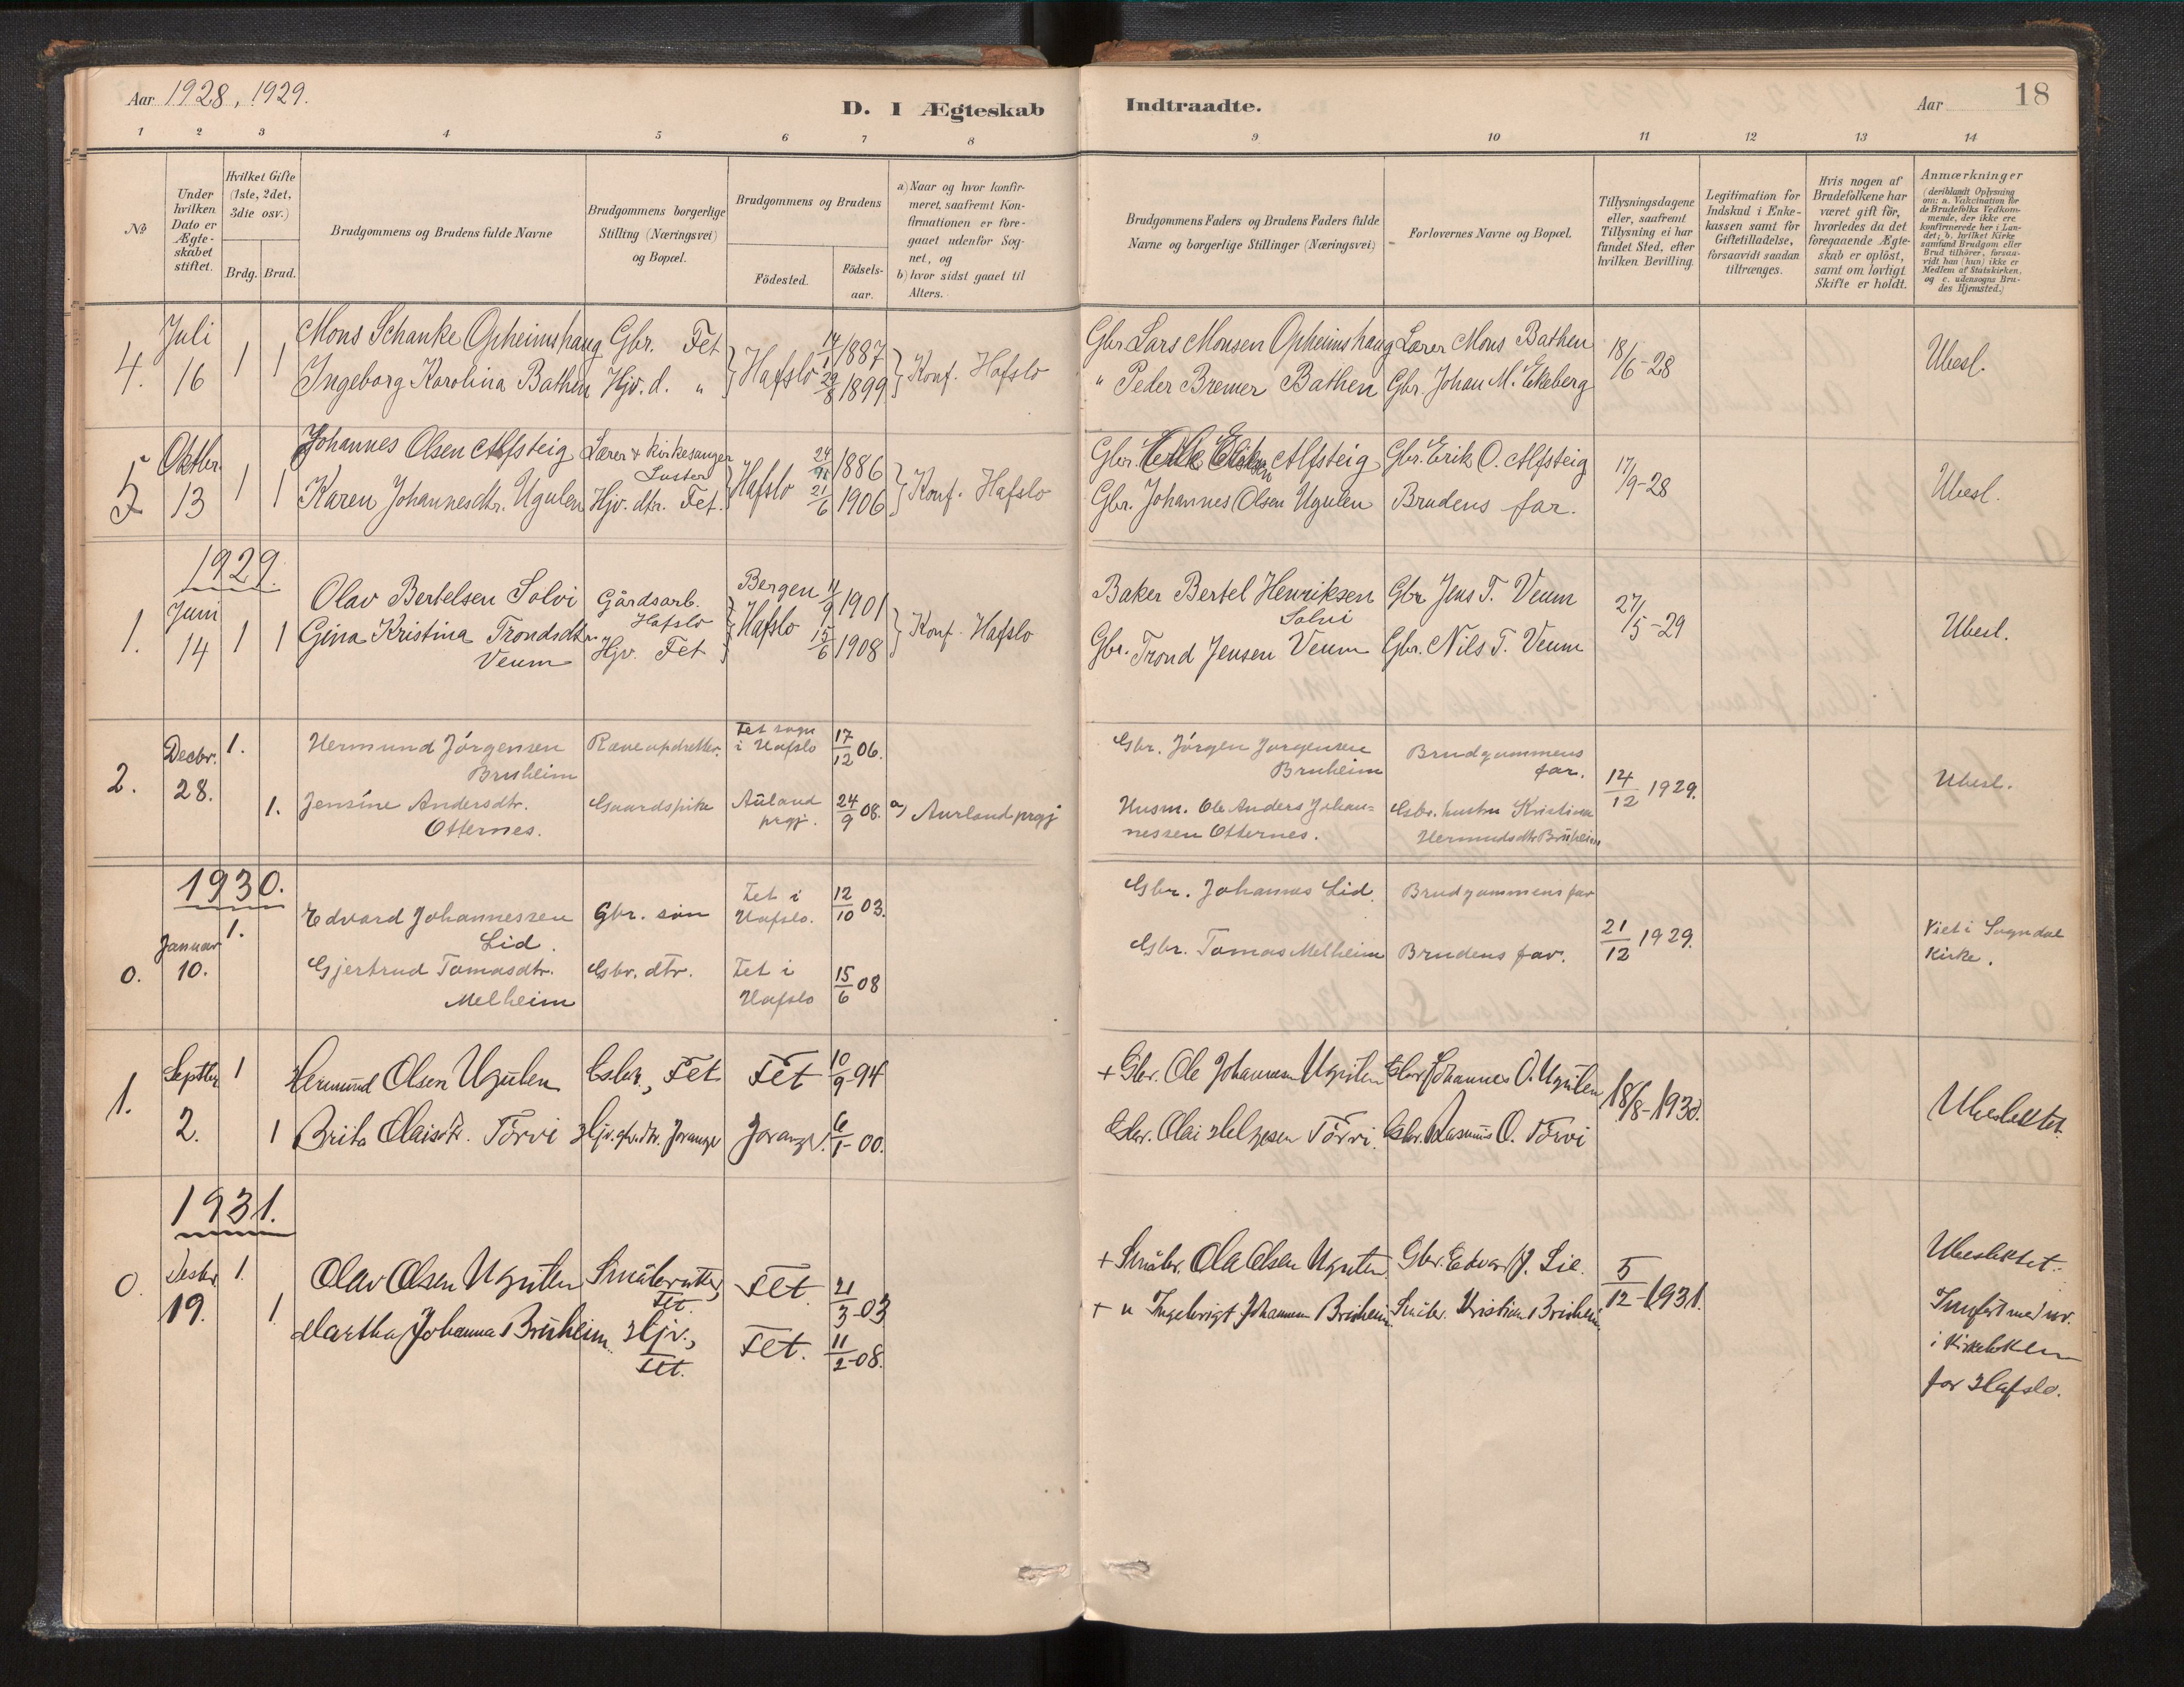 Aar 1928, 1929.
D. I Ægteskab Indtraadte.
Aar 18
1 2 3 4 5 6 7 8 9 10 11 12 13 14
No
Under hvilken Dato er Ægte-skabet stiftet.
Hvilket Gifte (1ste, 2det, 3die osv.)
Brdg. Brud.
Brudgommens og Brudens fulde Navne
Brudgommens borgerlige Stilling (Næringsvei) og Bopæl.
Brudgommens og Brudens
Födested.
Födsels-aar.
a) Naar og hvor konfir-meret, saafremt Kon-firmationen er fore-gaaet udenfor Sog-net, og
b) hvor sidst gaaet til Alters.
Brudgommens Faders og Brudens Faders fulde Navne og borgerlige Stillinger (Næringsvei)
Forlovernes Navne og Bopæl.
Tillysningsdagene eller, saafremt Tillysning ei har fundet Sted, efter hvilken Bevilling.
Legitimation for Indskud i Enke-kassen samt for Giftetilladelse, forsaavidt saadan tiltrænges.
Hvis nogen af Brudefolkene har været gift för, hvorledes da det foregaaende Ægte-skab er oplöst, samt om lovligt Skifte er holdt.
Anmærkninger (deriblandt Oplysning om: a. Vakcination for de Brudefolks Vedkom-mende, der ikke ere konfirmerede her i Lan-det; b. hvilket Kirke samfund Brudgom eller Brud tilhörer, forsaa-vidt han (hun) ikke er Medlem af Statskirken, og c. udensogns Bru-des Hjemsted.)
4. Juli 16 1 1
Mons Schanke Opheimshaug Gbr. Fet 14/1 1887
Ingeborg Karolina Bathen Hjv. d. " Hafslo 29/8 1899 Konf. Hafslo
Gbr. Lars Monsen Opheimshaug Lærer Mons Bathen 18/6-28 Ubesl.
" Peder Bremer Bathen Gbr. Johan M. Ekeberg
5 Oktbr. 13 1 1
Johannes Olsen Alfsteig Lærer & Kirkesanger Luster 1886
Karen Johannesdtr. Ugulen Hjv. dtr. Fet. Hafslo 21/6 1906 Konf. Hafslo
Gbr. Alfsteig Gbr. Erik O. Alfsteig 17/9-28 Ubesl.
Gbr. Johannes Olsen Ugulen Brudens far.
1929.
1. Juni 14 1 1
Olav Bertelsen Solvi Gårdsarb. Hafslo Bergen 11/9 1901
Gina Kristina Trondsdtr. Veum Hjv. Fet Hafslo 15/6 1908 Konf. Hafslo
Baker Bertel Henriksen Solvi Gbr Jens T. Veum 27/5-29 Ubesl.
Gbr. Trond Jensen Veum Gbr. Nils T. Veum
2. Decbr. 28. 1. 1.
Hermund Jörgensen Bruheim Ræveopdretter. Fet sogn i Hafslo 17/12 06.
Jensine Andersdtr. Otternes. Gaardspike Aurland prgj. 24/9 08. a) Aurland prgj
Gbr. Jörgen Jørgensen Bruheim Brudgommens far. 14/12 1929. Ubesl.
Husm. Ole Anders Johan=nessen Otternes. Gbr. hustru Kristina Hermundsdtr Bruheim
1930.
0. Januar 10. 1.
Edvard Johannessen Lid. Gbr. sön Fet i Hafslo. 12/10 03.
Gjertrud Tomasdtr. Melheim Gbr. dtr. Fet i Hafslo 15/6 08
Gbr. Johannes Lid. Brudgommens far 21/12 1929. Viet i Sogndal Kirke.
Gbr. Tomas Melheim Brudens far.
1. Septbr 2. 1 1
Hermund Olsen Ugulen Gbr., Fet Fet 10/9-94
Brita Olaisdtr. Törvi Hjv. gbr. dtr. Joranger Joranger. 6/1-00.
+ Gbr. Ole Johannesen Ugulen Gbr. Johannes O. Ugulen 18/8-1930. Ubeslektet.
Gbr. Olai Helgesen Törvi. Gbr. Rasmus O. Törvi
1931.
0. Desbr 19. 1. 1.
Olav Olsen Ugulen Småbruker, Fet. Fet. 21/3-03
Martha Johanna Bruheim. Hjv., Fet. Fet. 11/2-08.
+ Småbr. Ola Olsen Ugulen Gbr. Edvard J. Lie. 5/12-1931. Ubeslektet.
+ " Ingebrigt Johannesen Bruheim. Småbr. Kristian Bruheim.
Innført med nr. i Kirkeboken for Hafslo.